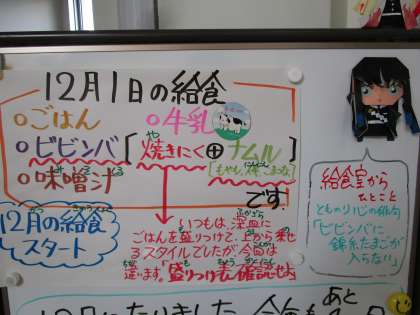 12月1日の給食
○ごはん ○牛乳
○ビビンバ[焼きにく⊕ナムル]
○味噌汁 [もやし、にんじん、こまつな]
です。
12月の給食
スタート
いつもは、深皿に
ごはんを盛りつけて、上から乗せ
るスタイルでしたが、今回は
違います。「盛りつけ表」確認せよ
給食室から
ひとこと
とものり心の俳句
「ビビンバに
錦糸たまごが
入らない」
あと